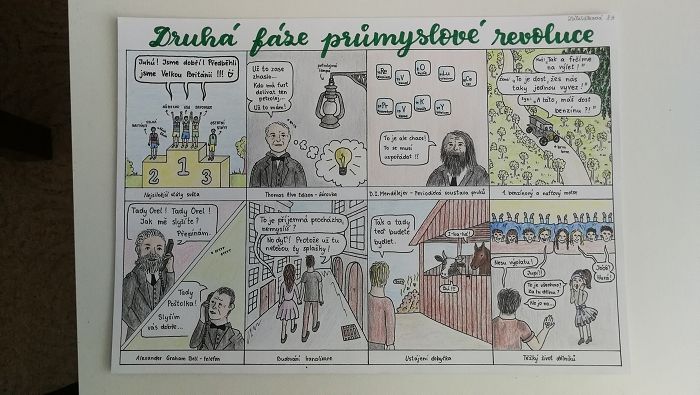 Druhá fáze průmyslové revoluce
Juhů! Jsme dobří! Předběhli
jsme Velkou Británii !!!
1
2
3
Nejsilnější státy světa
Už to zase
zhaslo...
Kdo má furt
dolívat ten
petrolej...
Už to mám!
petrolejová
lampa
Thomas Alva Edison - žárovka
Re
O
Lu
Ce
V
Pr
V
K
Y
To je ale chaos!
To se musí
uspořádat !!!
D. I. Mendělejev - Periodická soustava prvků
Tak a frčíme
na výlet!"
"To je dost, žes nás
taky jednou vyvez!"
"A táto, máš dost
benzínu?!"
1. benzínový a naftový motor
Tady Orel! Tady Orel!
Jak mě slyšíte?
Přepínám.
Tady
Poštolka!
Slyším
vás dobře...
Alexander Graham Bell - telefon
To je příjemná procházka,
nemyslíš?
No dyť! Protože už tu
netečou ty splašky!
Budování kanalizace
Tak a tady
teď budete
bydlet.
I-ha-ha!
Bú!!!
Ustájení dobytka
Nesu výplatu!
Jupí!
Jééé!
Hurá!
To je všechno?
Za tu dřinu?
No jo no...
Těžký život dělníků